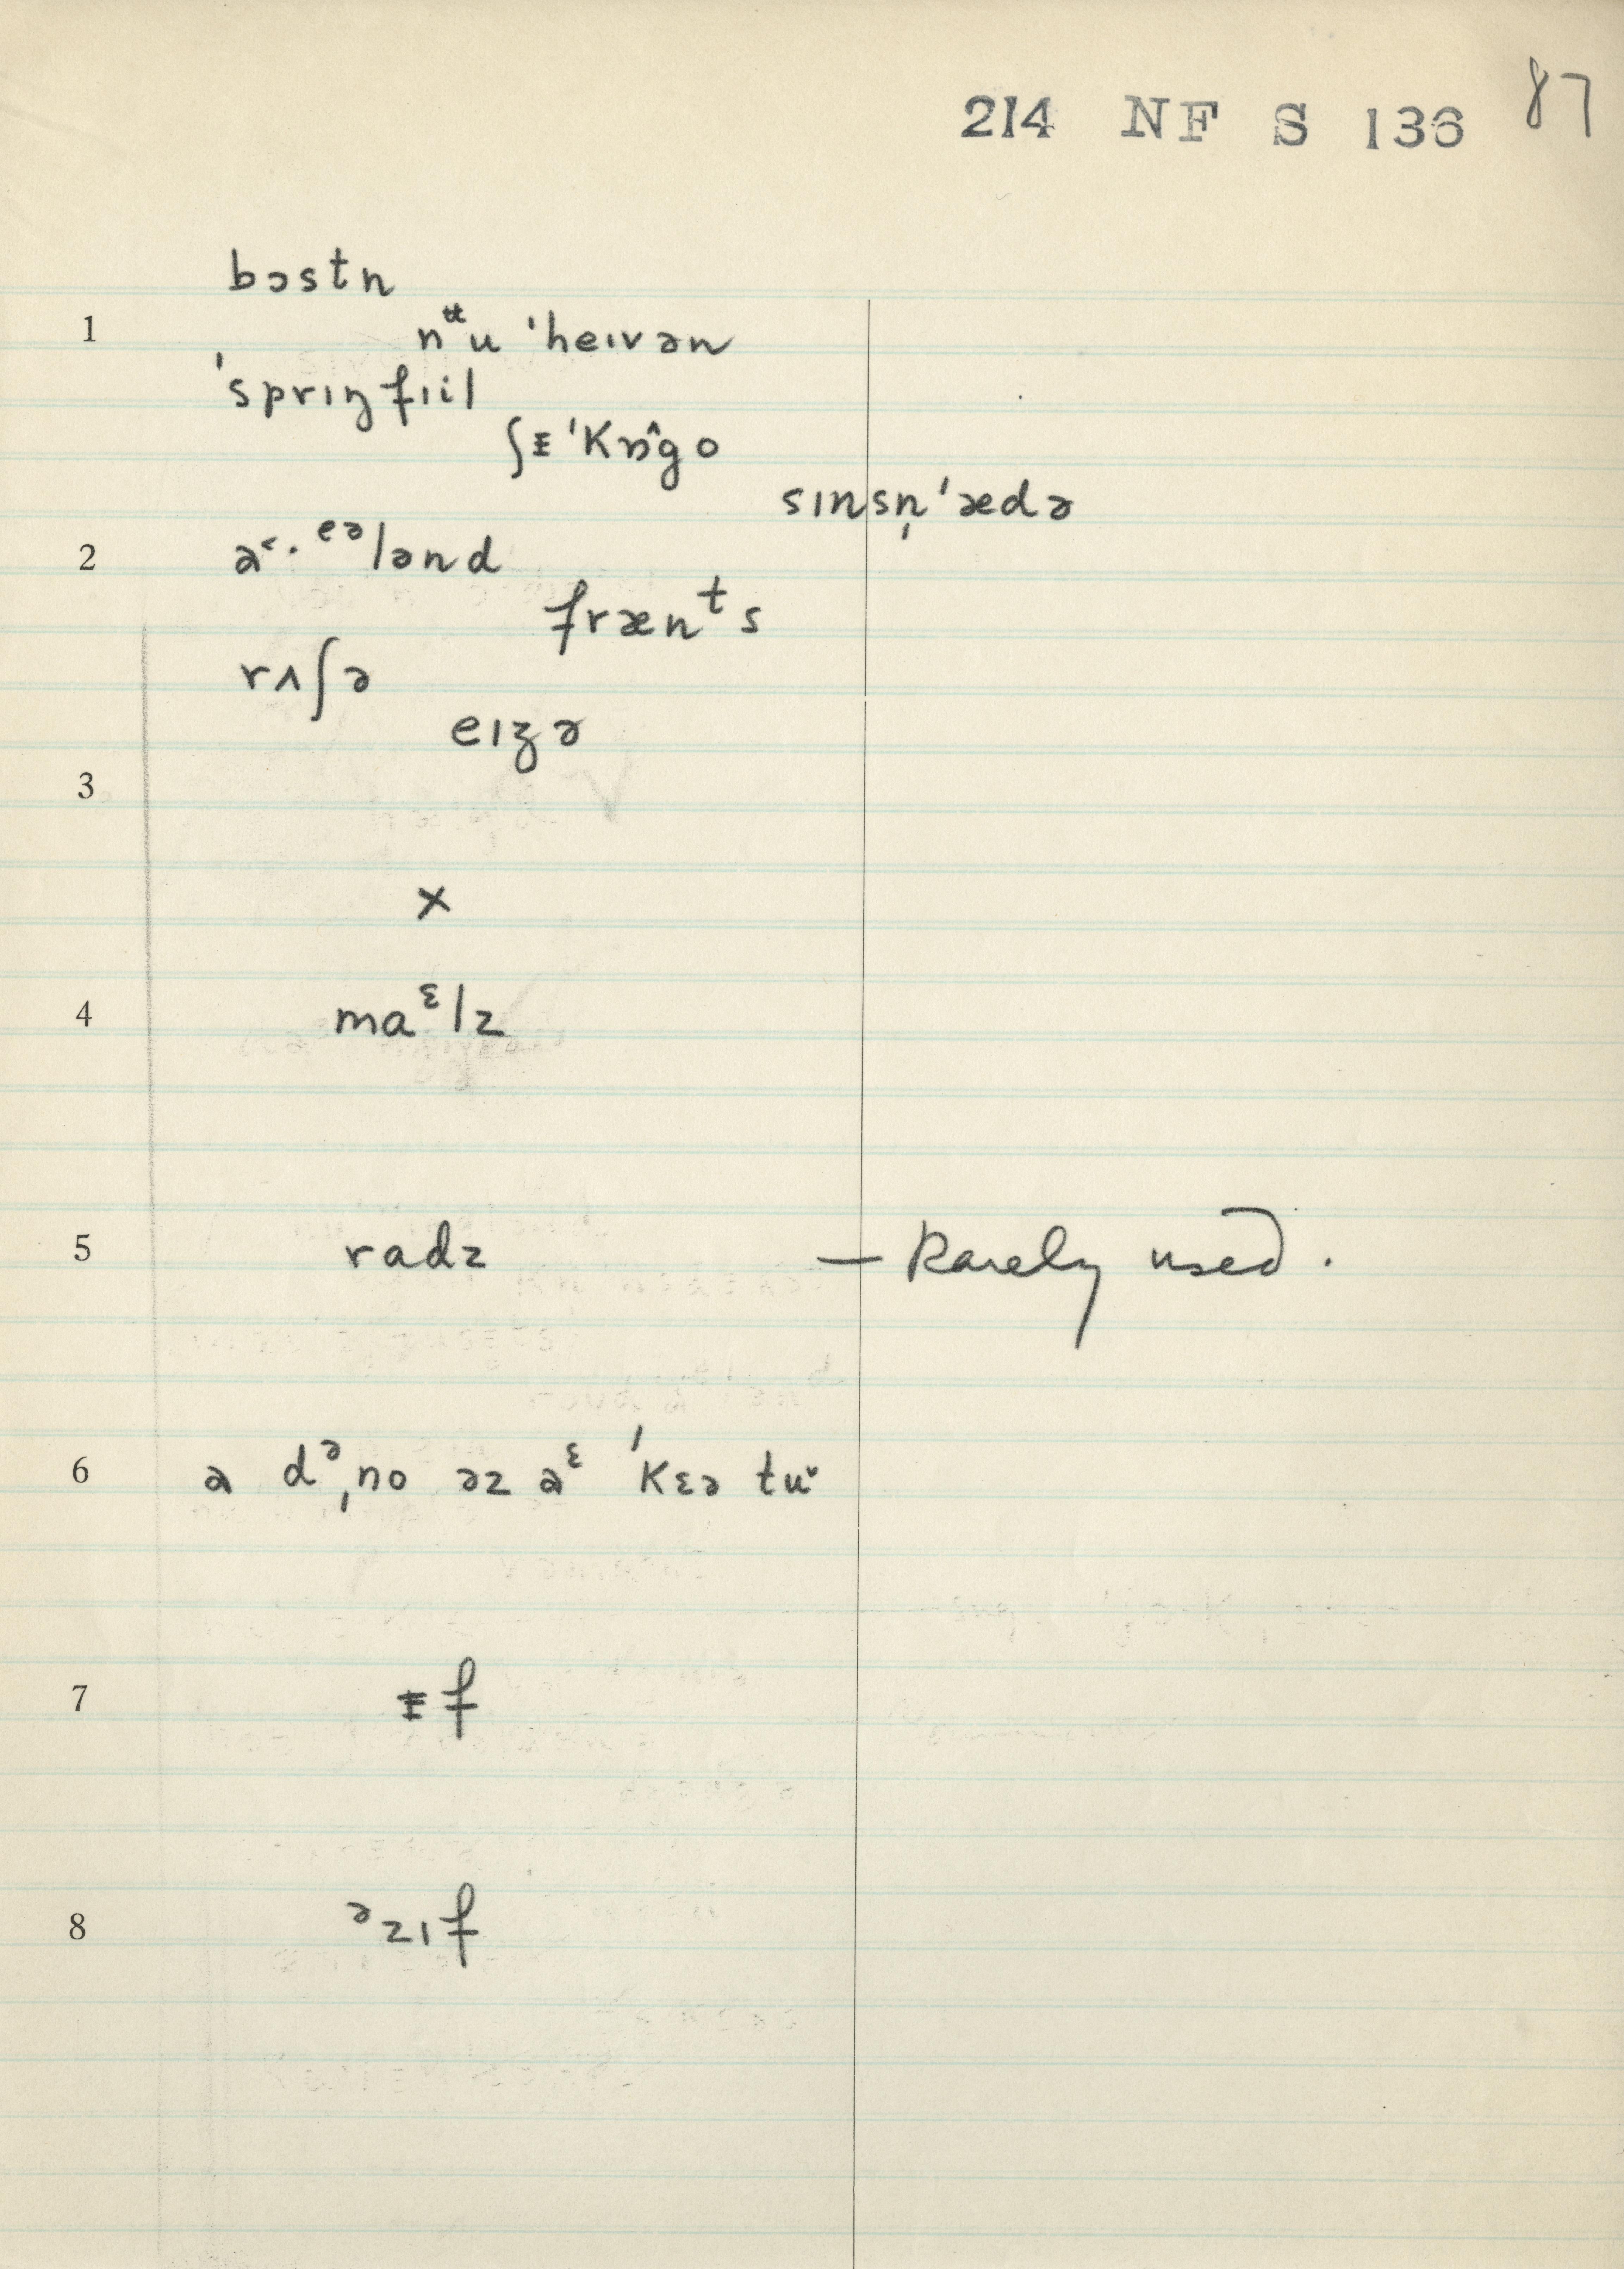 214 NF S 136 87
bɔstn
1 nᵿu ˈheɪvən
ˈsprɪŋfɪil
ʃᵻ ˈkɒ^go
sɪnsn̩ˈædə
2 a˂·ᵉᵊlənd
frænᵗs
rʌʃə
eɪʒə
3
×
4 maᵋlz
5 radz — Rarely used.
6 a dᵊˌno əz aᵋ ˈkɛə tu˅
7 ᵻf
8 ᵊzɪf